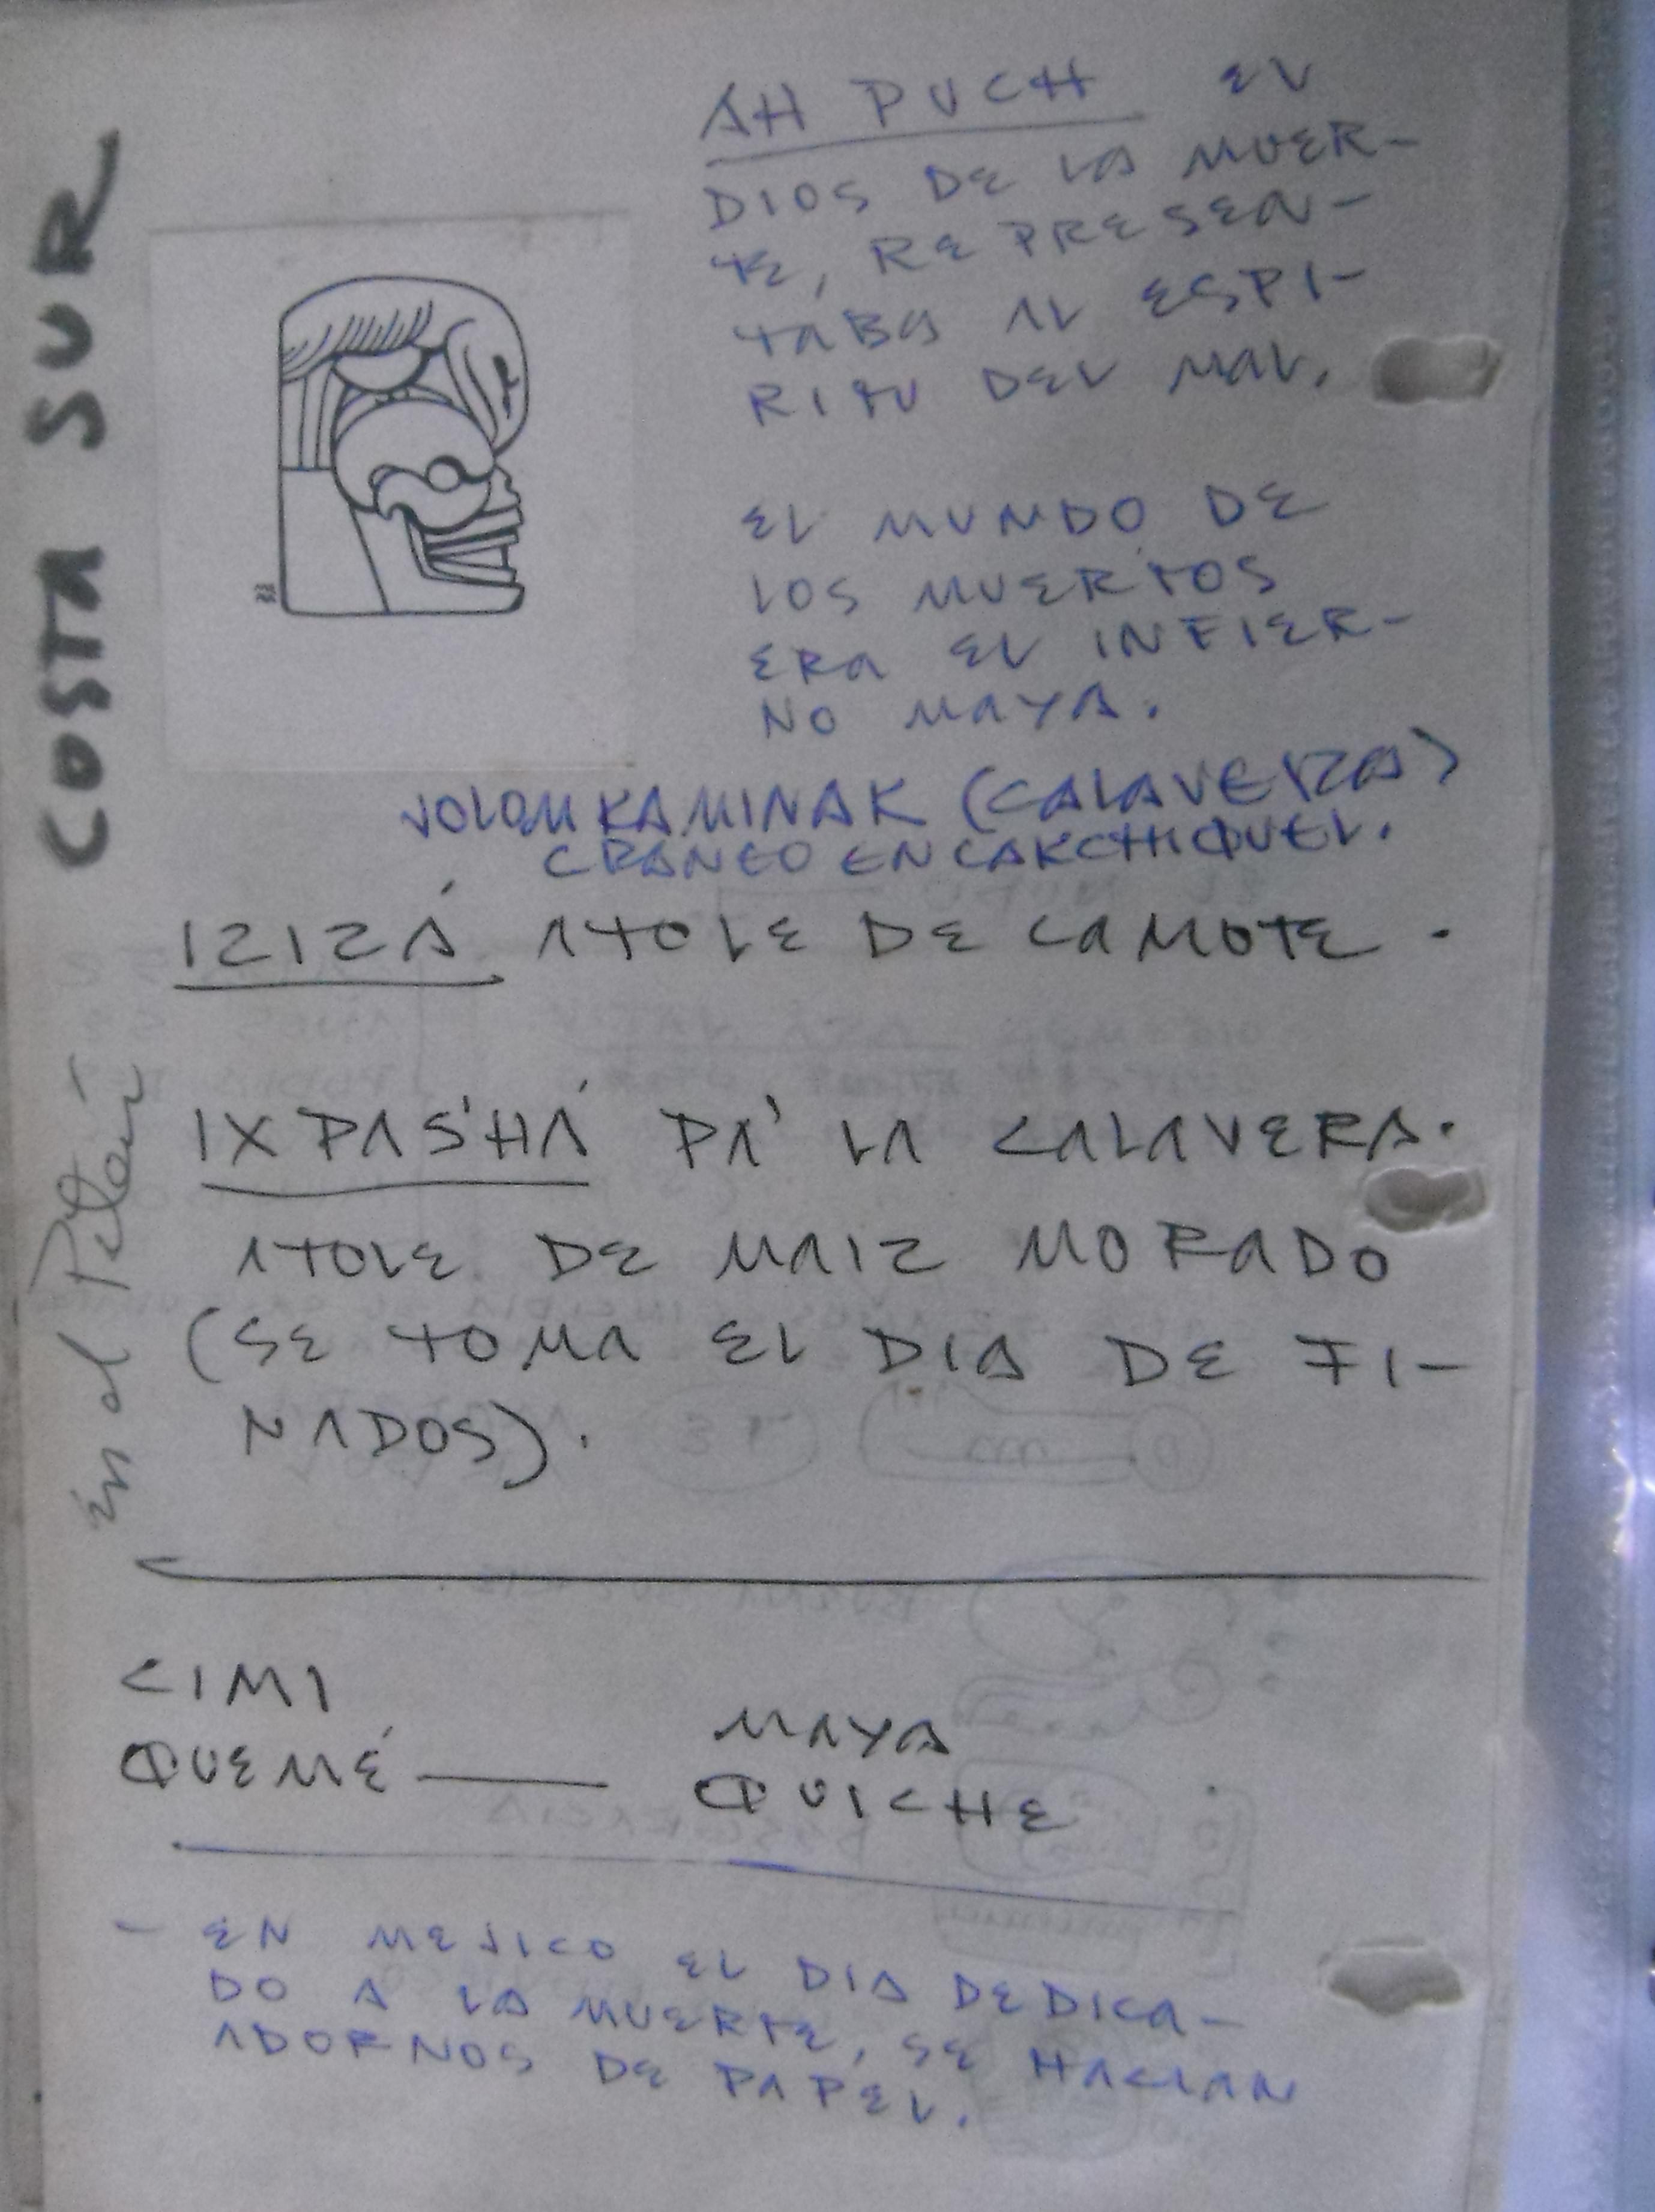 COSTA SUR
AH PUCH EL
DIOS DE LA MUER-
TE, REPRESEN-
TABA AL ESPI-
RITU DEL MAL.
EL MUNDO DE
LOS MUERTOS
ERA EL INFIER-
NO MAYA.
JOLOM KAMINAK (CALAVERA)
CRANEO EN CAKCHIQUEL.
IZIZÁ ATOLE DE CAMOTE.
en el Petén
IXPAS'HÁ PA' LA CALAVERA.
ATOLE DE MAIZ MORADO
(SE TOMA EL DIA DE FI-
NADOS).
CIMI MAYA
QUEMÉ — QUICHE
- EN MEJICO EL DIA DEDICA-
DO A LA MUERTE, SE HACIAN
ADORNOS DE PAPEL.